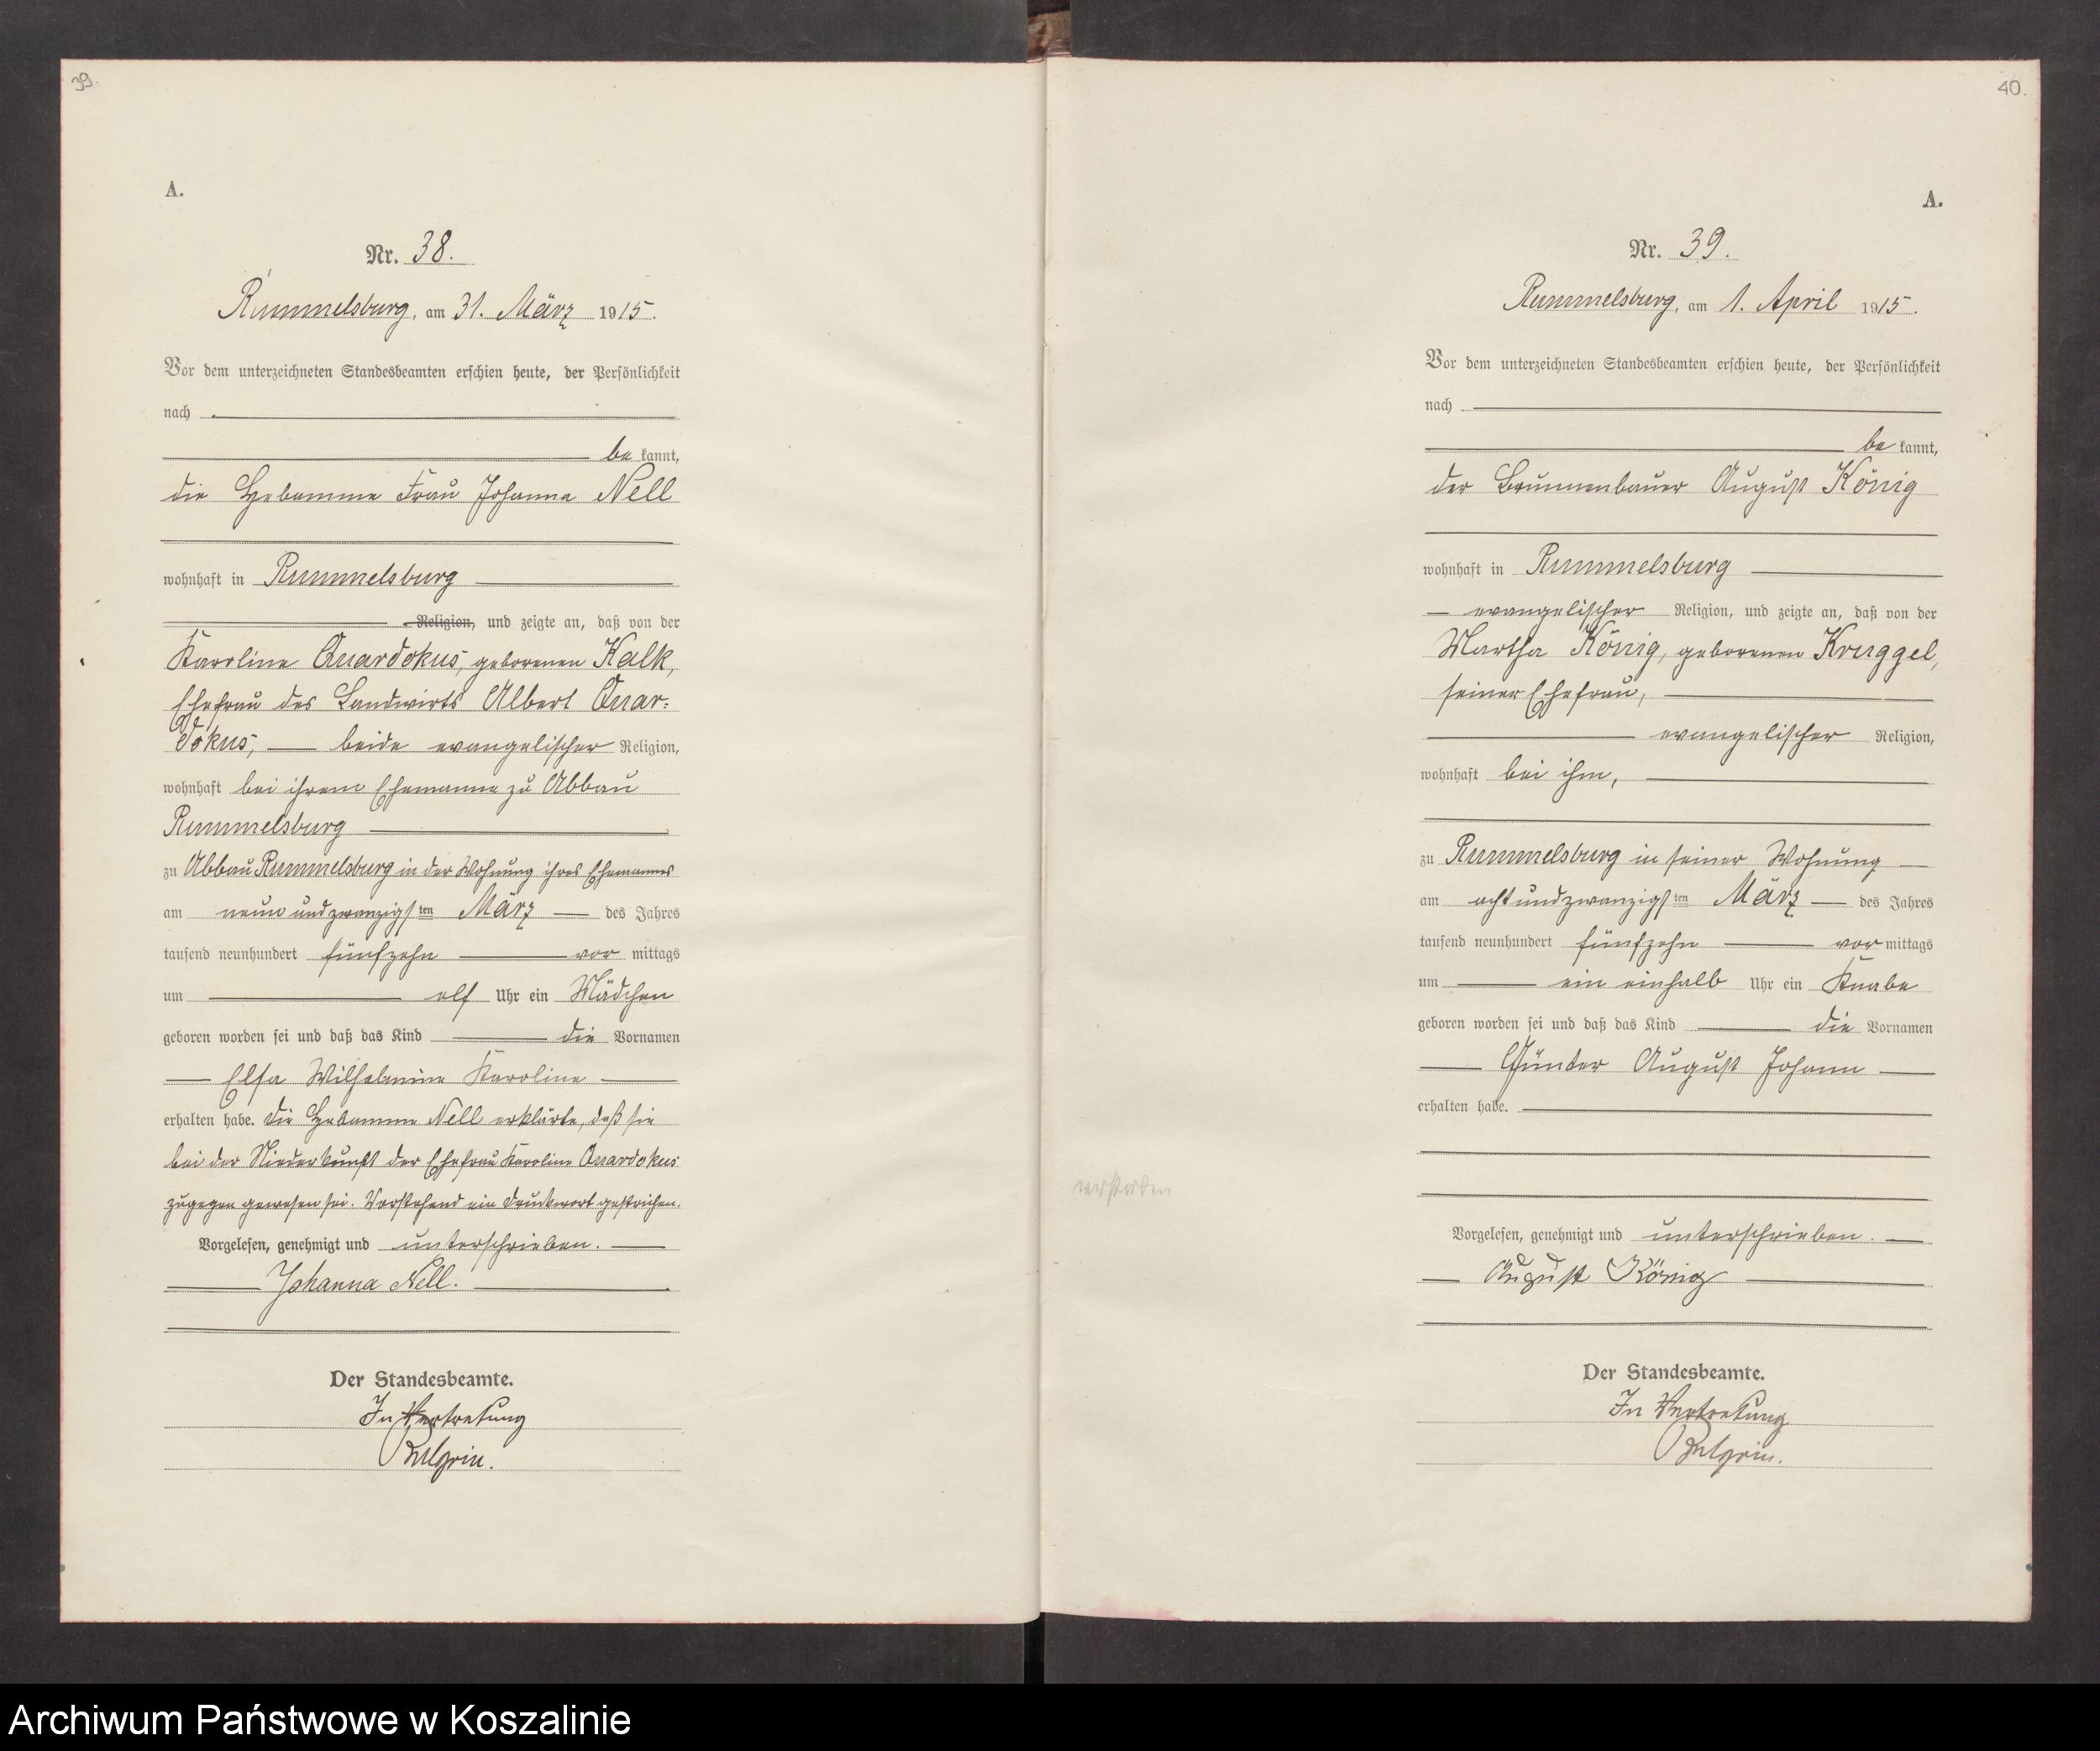 39.
A.
Nr. 38.
Rummelsburg, am 31. März 1915.
Vor dem unterzeichneten Standesbeamten erschien heute, der Persönlichkeit
nach
be kannt,
die Hebamme Frau Johanna Nell
wohnhaft in Rummelsburg
Religion, und zeigte an, daß von der
Karoline Quardokus, geborenen Kalk,
Ehefrau des Landwirts Albert Quar-
dokus, beide evangelischer Religion,
wohnhaft bei ihrem Ehemanne zu Abbau
Rummelsburg
zu Abbau Rummelsburg in der Wohnung ihres Ehemannes
am neunundzwanzigsten März des Jahres
tausend neunhundert fünfzehn vor mittags
um elf Uhr ein Mädchen
geboren worden sei und daß das Kind die Vornamen
Elsa Wilhelmine Karoline
erhalten habe. Die Hebamme Nell erklärte, daß sie
bei der Niederkunft der Ehefrau Karoline Quardokus
zugegen gewesen sei. Vorstehend ein Druckwort gestrichen.
Vorgelesen, genehmigt und unterschrieben.
Johanna Nell.
Der Standesbeamte.
In Vertretung
40.
A.
Nr. 39.
Rummelsburg, am 1. April 1915.
Vor dem unterzeichneten Standesbeamten erschien heute, der Persönlichkeit
nach
be kannt,
der Brunnenbauer August König
wohnhaft in Rummelsburg
evangelischer Religion, und zeigte an, daß von der
Martha König, geborenen Kruggel,
seiner Ehefrau,
evangelischer Religion,
wohnhaft bei ihm,
zu Rummelsburg in seiner Wohnung
am achtundzwanzigsten März des Jahres
tausend neunhundert fünfzehn vor mittags
um ein einhalb Uhr ein Knabe
geboren worden sei und daß das Kind die Vornamen
Günter August Johann
erhalten habe.
verstorben
Vorgelesen, genehmigt und unterschrieben.
August König
Der Standesbeamte.
In Vertretung
Archiwum Państwowe w Koszalinie